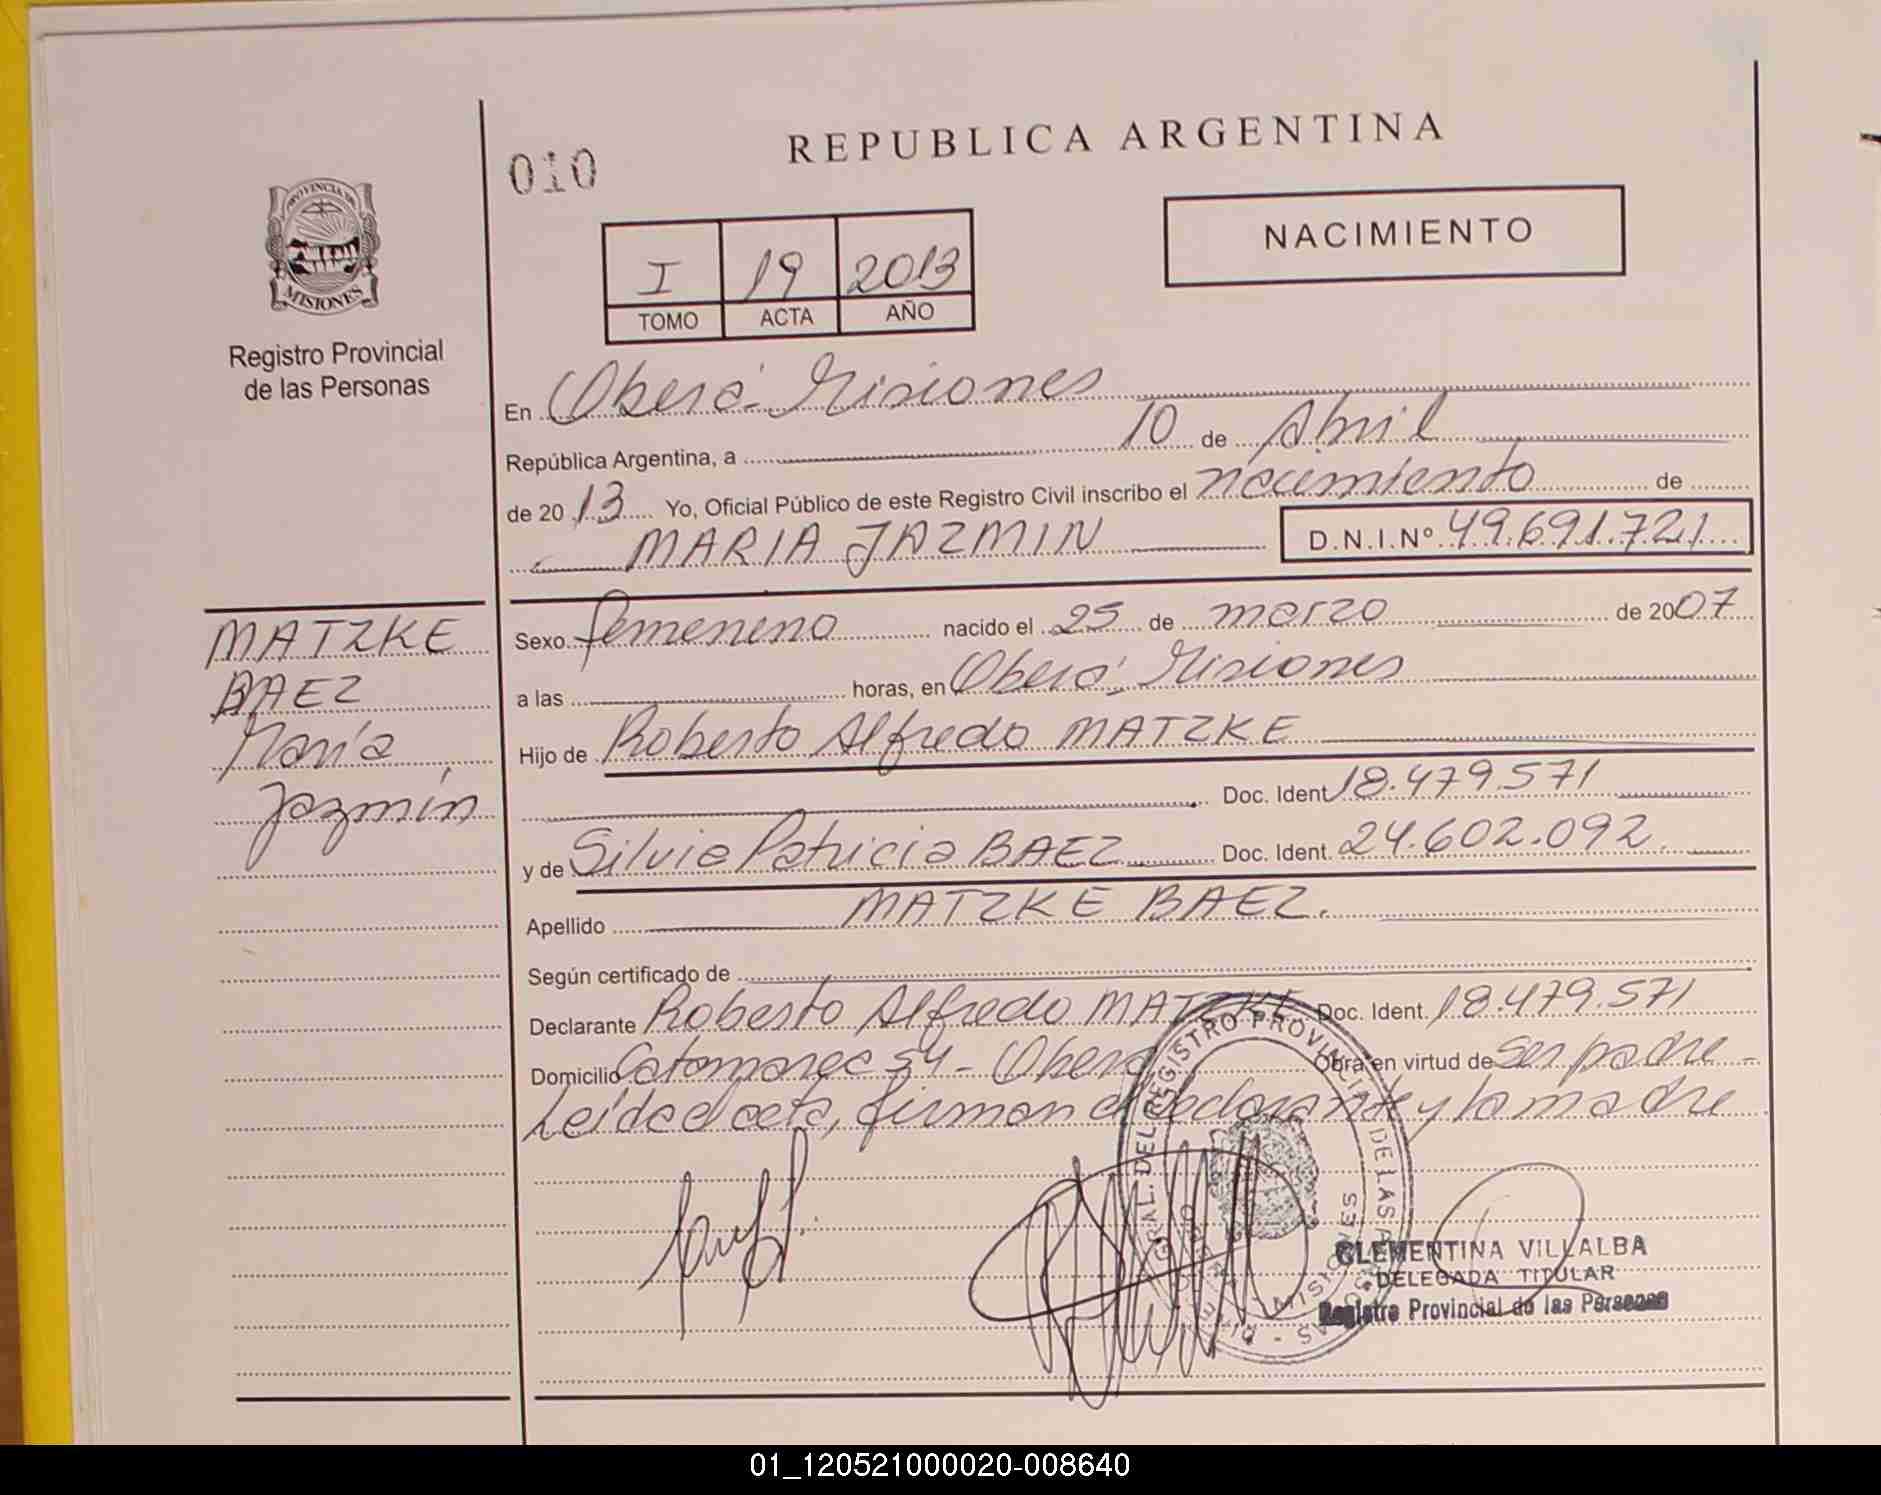 REPUBLICA ARGENTINA
010
NACIMIENTO
I 19 2013
TOMO ACTA AÑO
PROVINCIA DE
MISIONES
Registro Provincial
de las Personas
En Oberá Misiones
República Argentina, a 10 de Abril
de 20 13 Yo, Oficial Público de este Registro Civil inscribo el nacimiento de
MARIA JAZMIN D.N.I.Nº 49.691.721
MATZKE
BAEZ
María
Jazmín
Sexo femenino nacido el 25 de marzo de 2007
a las horas, en Oberá Misiones
Hijo de Roberto Alfredo MATZKE
Doc. Ident 18.479.571
y de Silvia Patricia BAEZ Doc. Ident. 24.602.092
Apellido MATZKE BAEZ.
Según certificado de
Declarante Roberto Alfredo MATZKE Doc. Ident. 18.479.571
Domicilio Catamarca 54 - Oberá Obra en virtud de ser padre -
Leída el acta, firman el declarante y la madre
GRAL. DEL REGISTRO PROVINCIAL DE LAS
MISIONES
CLEMENTINA VILLALBA
DELEGADA TITULAR
Registro Provincial de las Personas
01_120521000020-008640